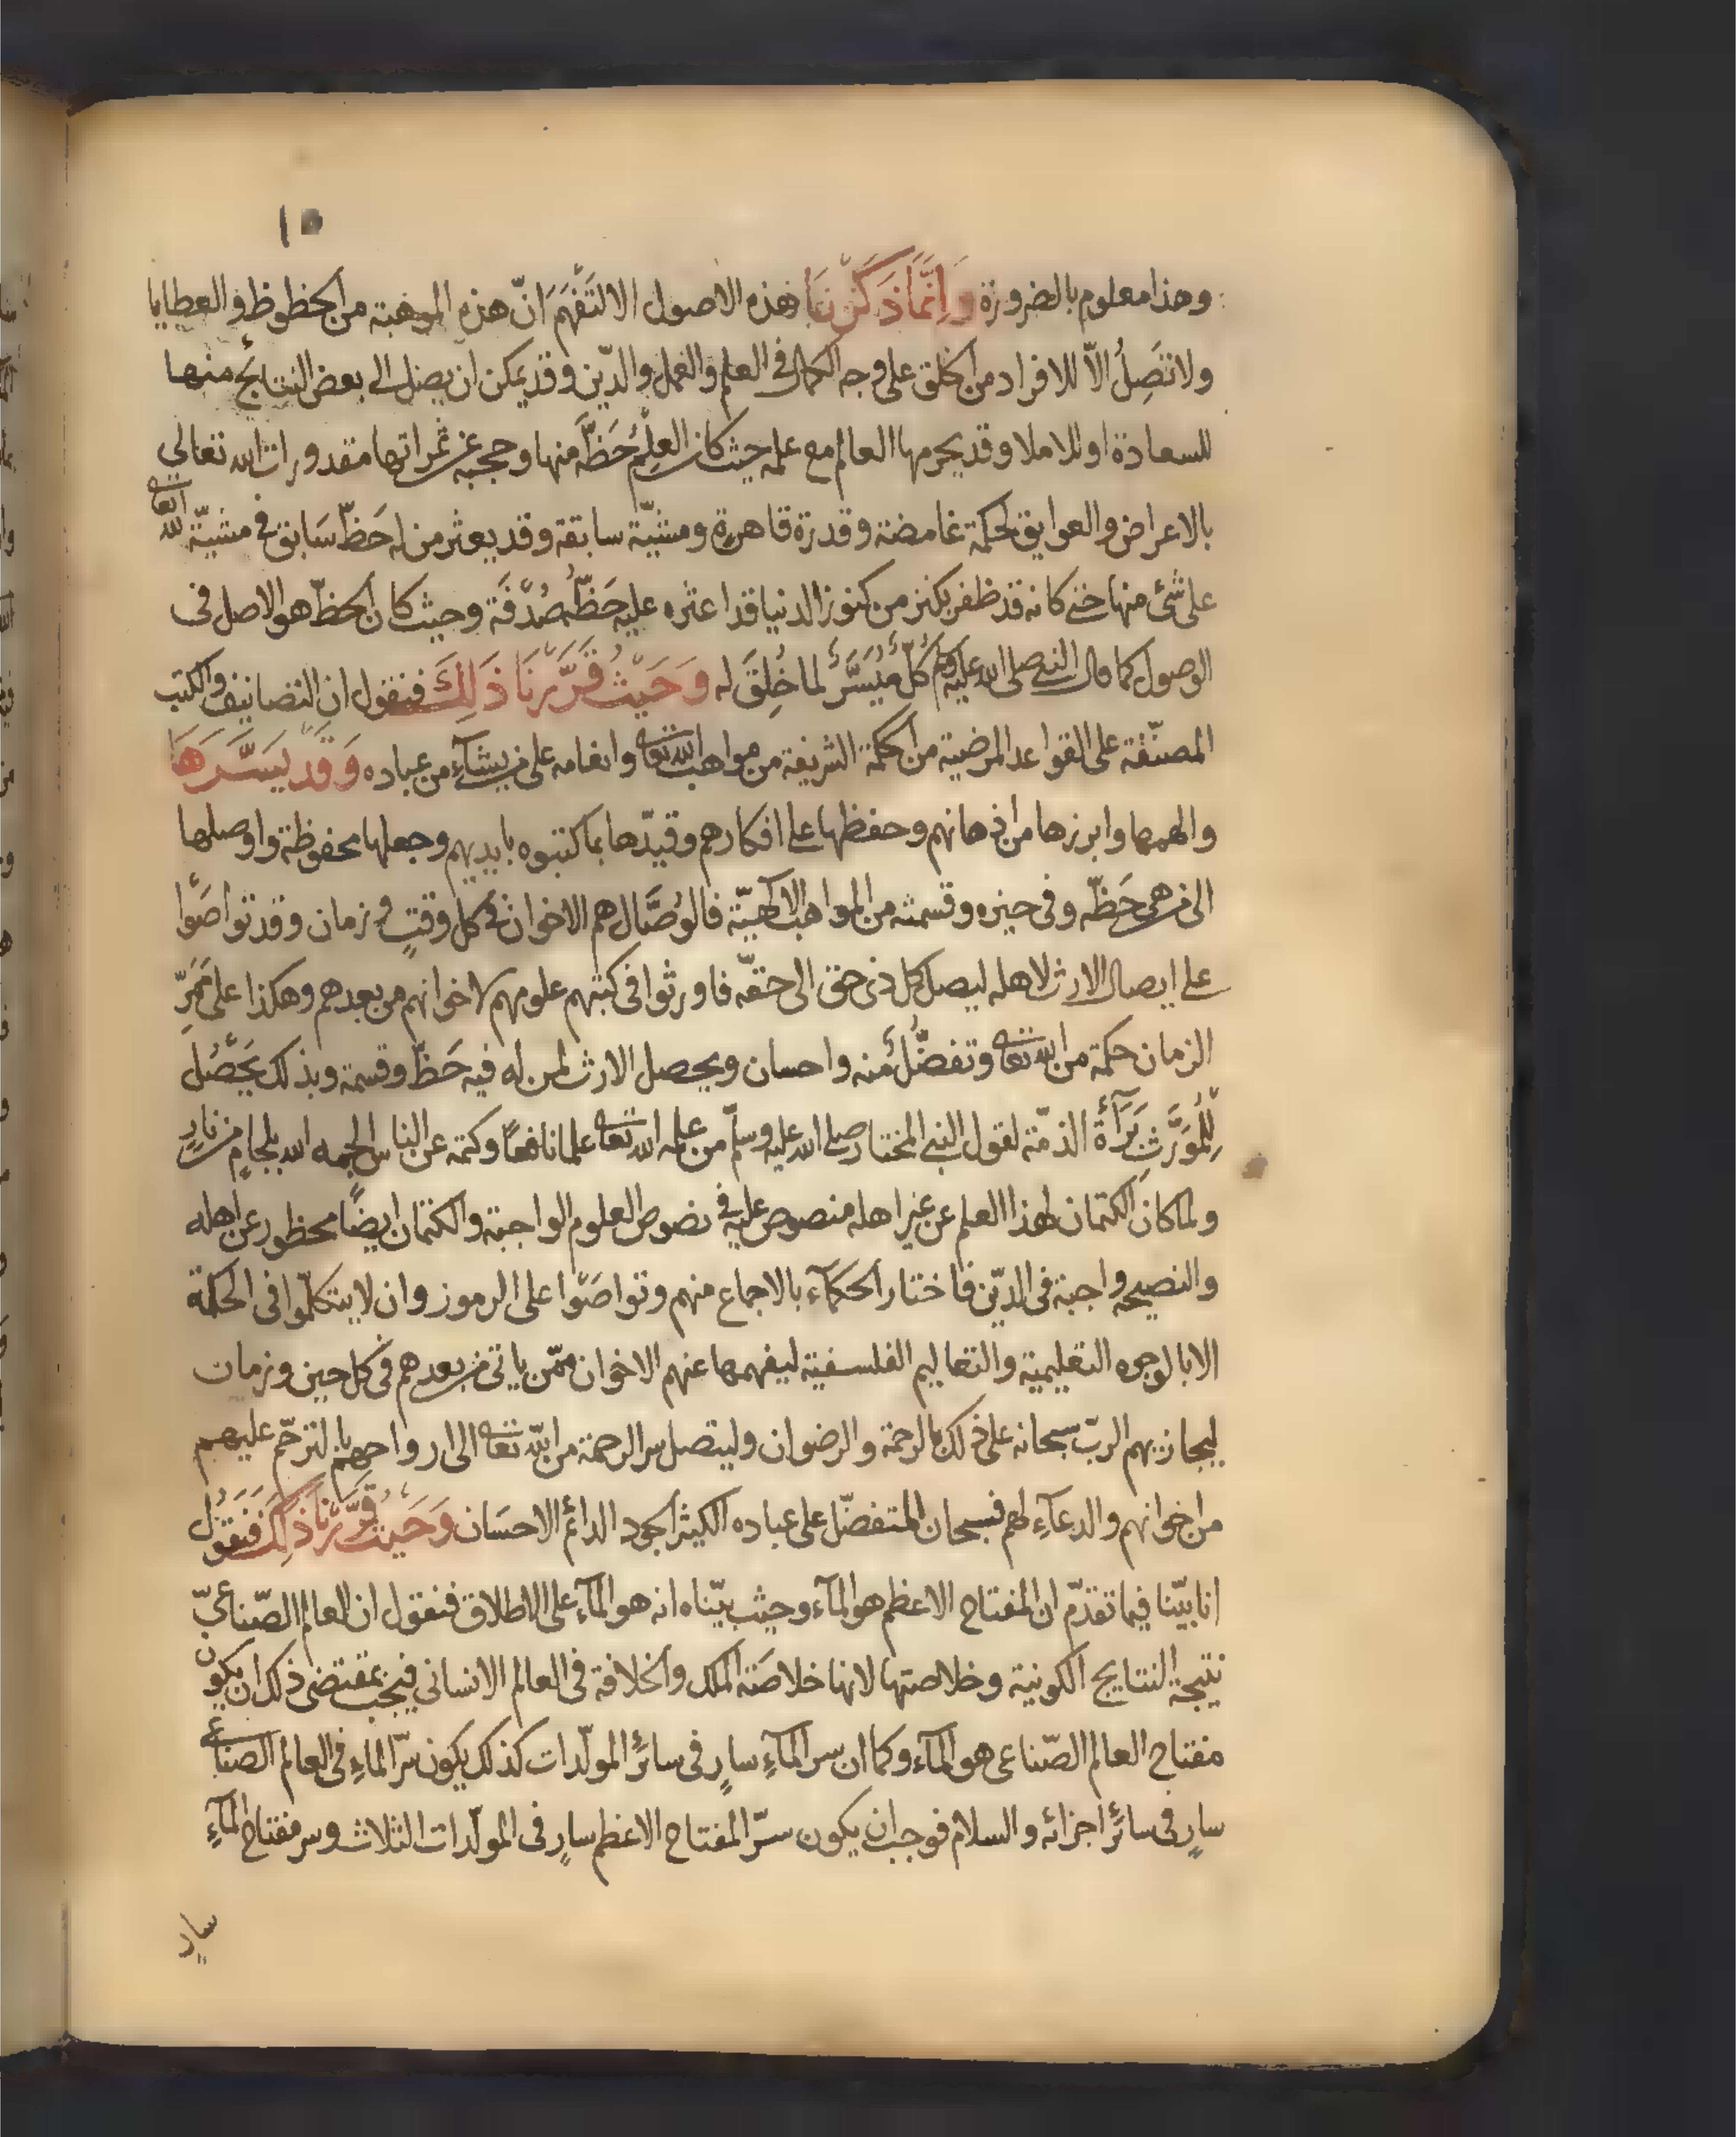 ١٥
وهذا معلوم بالضرورة وَاِنَّمَا ذَكَرْنَا هذه الاصول الا لتَفْهَمَ انّ هذه الموهبة من الحظوظ والعطايا
ولا تَصِلُ الّا للافراد من الخلق على وجه الكمال فى العلم والعمل والدّين وقد يمكن ان يصل الى بعض النتايج منها
للسعادة اوللاملا وقد يحرمها العالم مع علمه حيث كان العِلْمُ حَظَّه منها وحجبه عن ثمراتها مقدورات الله تعالى
بالاعراض والعوايق لحكمة غامضة وقدرة قاهرة ومشيّة سابقة وقد يعثر من له حَظّ سَابق فى مشيّة الله تعا
على شئ منها حتى كانه قد ظفر بكنز من كنوز الدنيا قد اعثره عليه حَظُّه صُدْفَة وحيث كان الحظّ هو الاصل فى
الوصول كما قال النبى صلى الله عليه وسلم كُلٌّ مُيَسَّرٌ لما خُلِقَ له وَحَيْثُ قَرَّرْنَا ذَلِكَ فنقول ان التصانيف والكتب
المصنّفة على القواعد المرضية من الحكمة الشريفة من مواهب الله تعا وانعامه على من يشآء من عباده وَقَد يَسَّرَهَا
والهمها وابرزها من اذهانهم وحفظها على افكارهم وقيّدها بما كتبوه بايديهم وجعلها محفوظة واوصلها
الى من هى حَظّه وفى حيزه وقسمته من المواهب الالهيّة فالوُصَّال هم الاخوان فى كل وقتٍ وزمان وقد تواصَوْا
على ايصال الارث لاهله ليصل كل ذى حق الى حقّه فاورثوا فى كتبهم علومهم لاخوانهم من بعدهم وهكذا على مَمَرِّ
الزمان حكمة من الله تعا وتفضُّلٌ منه واحسان ويحصل الارث لمن له فيه حَظّ وقسمة وبذلك يَحْصُل
لِلْمُوَرِّثِ بَرَآءَة الذمّة لقول النبى المختار صلى الله عليه وسلّم من علمه الله تعا علما نافعًا وكتمه عن الناس الجمه الله بلجامٍ من نارٍ
ولما كان الكتمان لهذا العلم عن غير اهله منصوص عليه فى نصوص العلوم الواجبة والكتمان ايضًا محظور عن اهله
والنصيحه واجبة فى الدّين فاختار الحكمآء بالاجماع منهم وتواصَوْا على الرموز وان لا يتكلّموا فى الحكمة
الا بالوجوه التعليمية والتعاليم الفلسفية ليفهمها عنهم الاخوان ممّن ياتى من بعدهم فى كل حين وزمان
ليجازيهم الربّ سبحانه على ذلك بالرحمة والرضوان وليتصل سر الرحمة من الله تعا الى ارواحهم بالترحّم عليهم
من اخوانهم والدعآء لهم فسبحان المتفضّل على عباده الكثير الجود الدائم الاحسَان وَحَيْثُ قَرَّرْنَا ذَلِكَ فَنَقُوْل
انا بيّنا فيما تقدّم ان المفتاح الاعظم هو المآء وحيث بيّناه انه هو المآء على الاطلاق فنقول ان العالم الصّناعىّ
نتيجة النتايج الكونية وخلاصتها لانها خلاصَة الملك والخلافة فى العالم الانسانى فيجب بمقتضى ذلك ان يكون
مفتاح العالم الصّناعى هو المآء وكما ان سر المآءِ سارٍ فى سائر المولّدات كذلك يكون سرّ الماءِ فى العالم الصناعى
سارٍ فى سائر اجزائه والسلام فوجب ان يكون سرّ المفتاح الاعظم سارٍ فى المولّدات الثلاث وسر مفتاح المآءِ
سارٍ